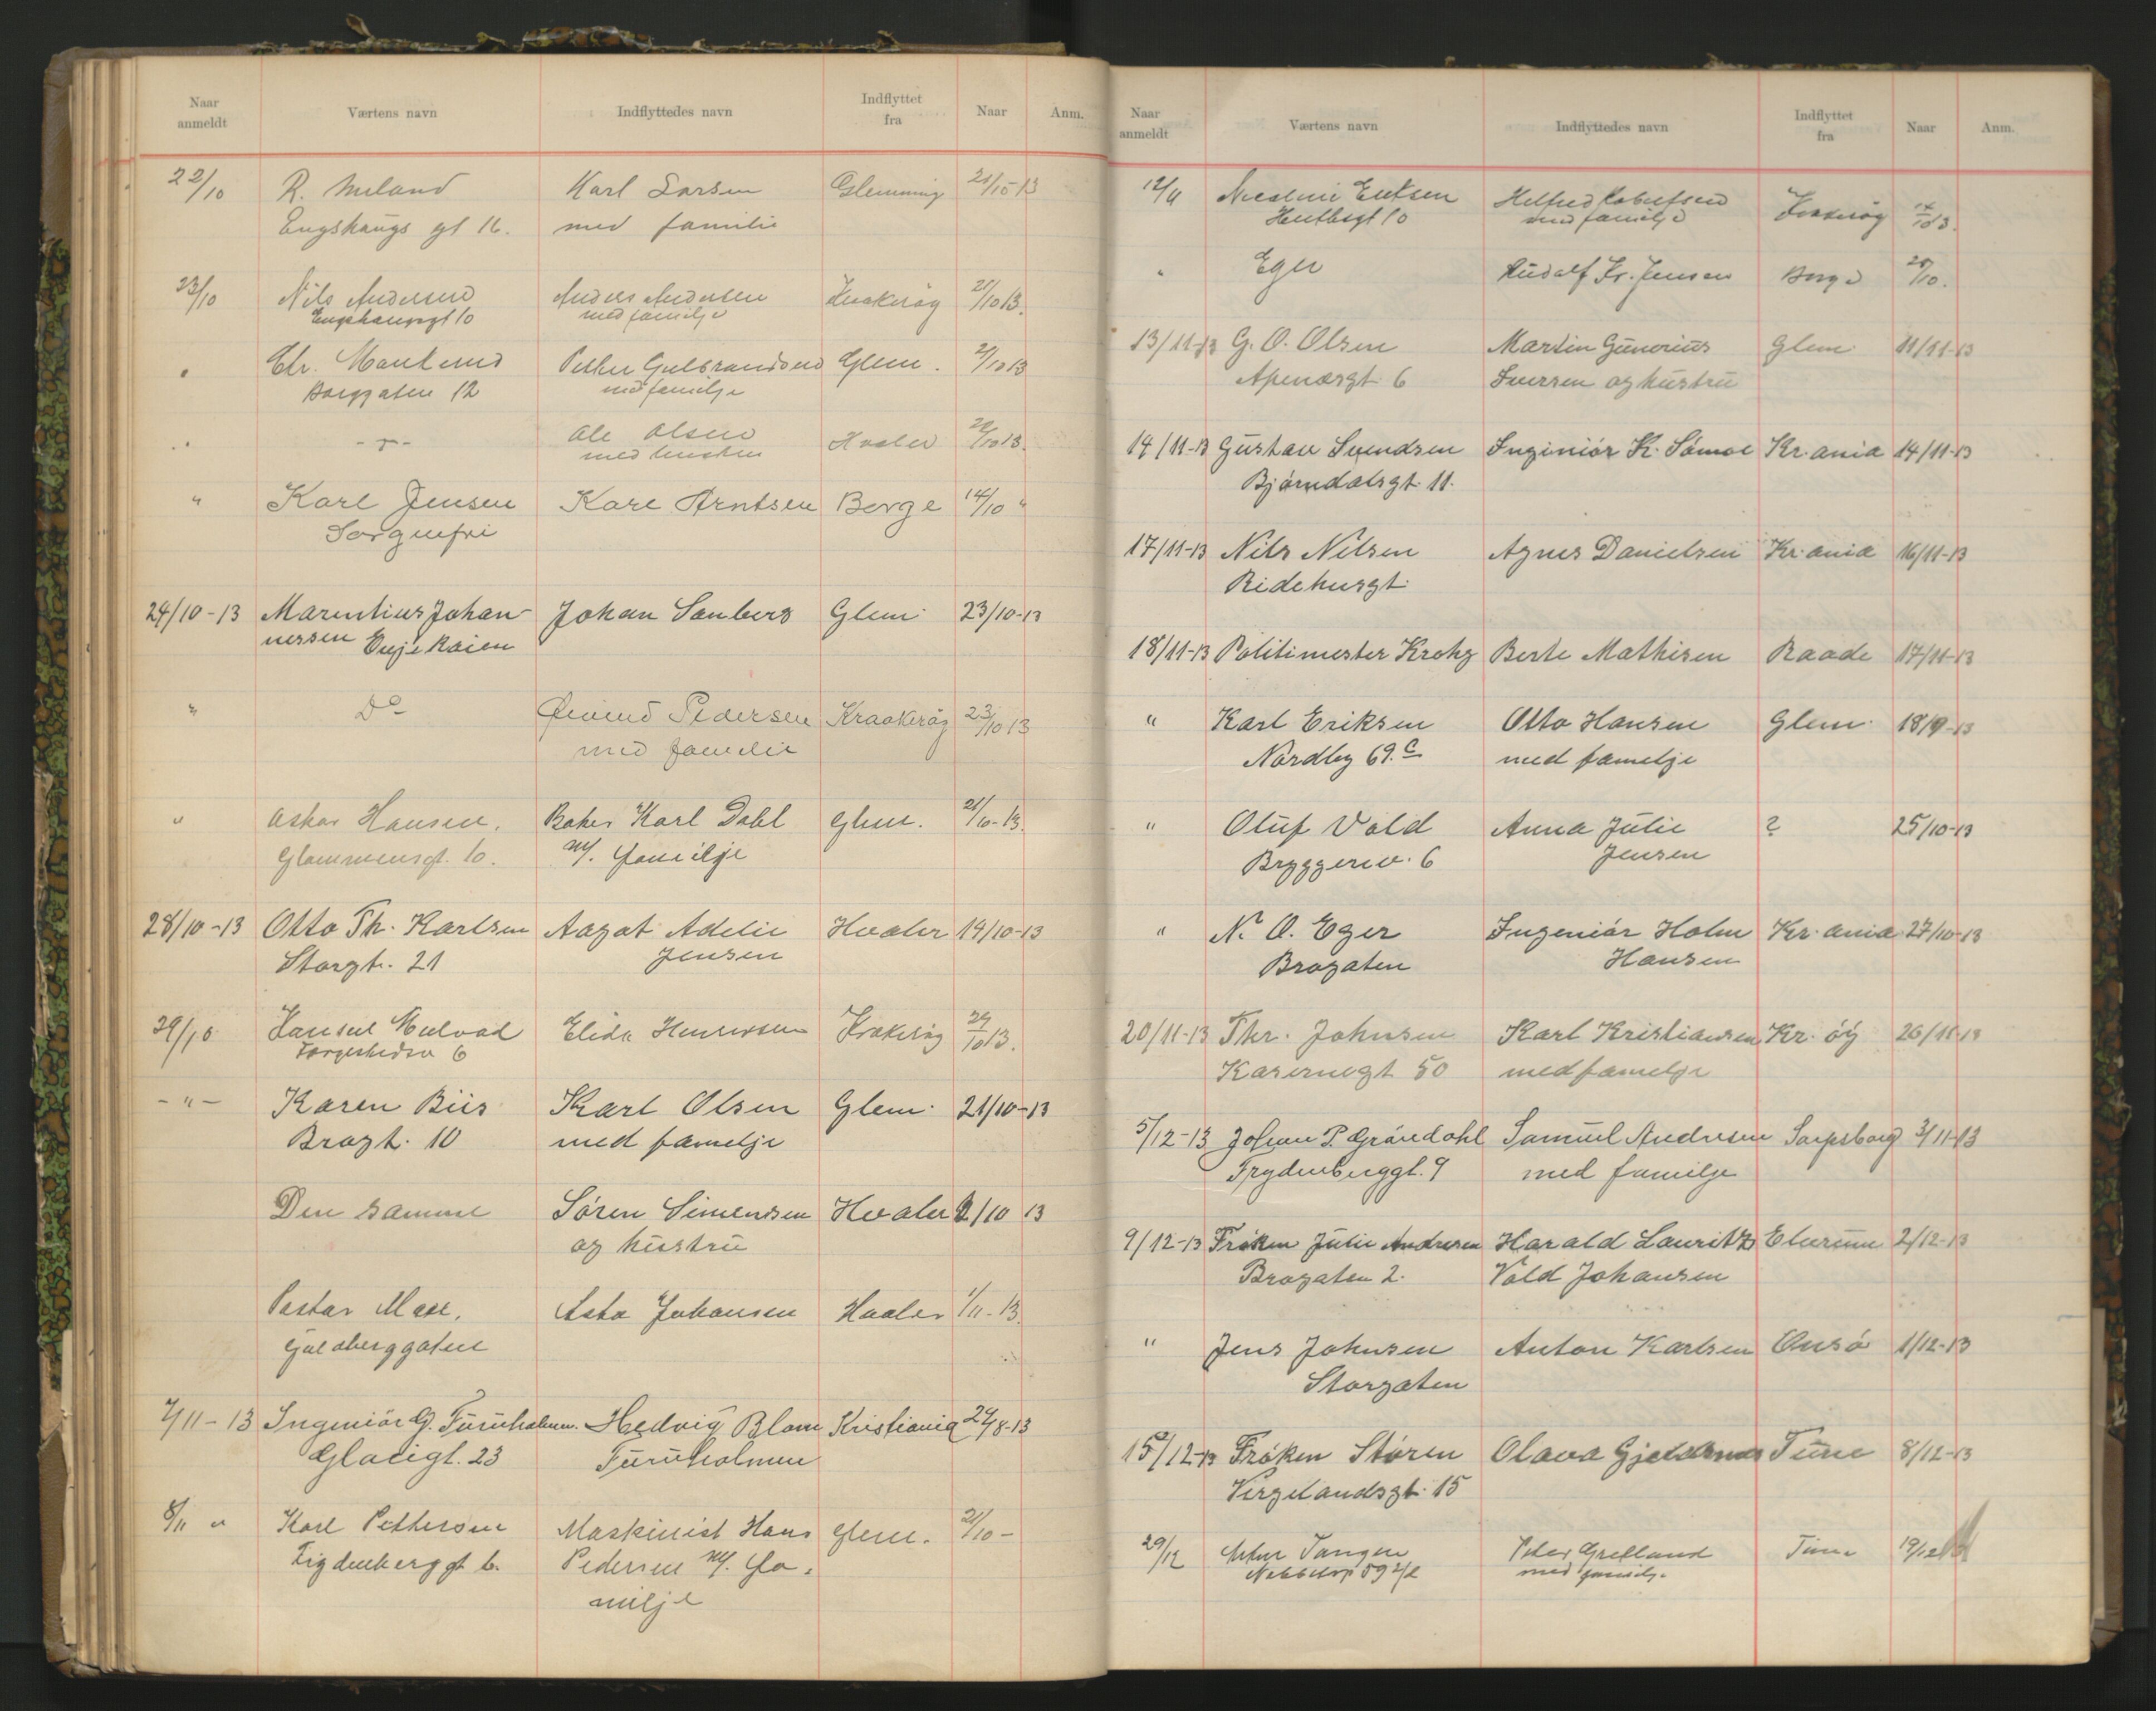 Naar anmeldt Værtens navn Indflyttedes navn Indflyttet fra Naar Anm.
22/10 R. Meland Karl Larsen Glemming 21/10-13
Engshaugs gt 16. med familie
23/10 Nils Andersen Anders Andersen Krakerøy 21/10 13.
Engshaugsgt 10 med familje
" Chr. Petter Gulbrandsen Glem. 21/10 13
Borggaten 12 med familje
" -"- Ole Olsen Hvaler 13.
med
" Karl Jensen Karl Arntsen Borge 14/10 "
Sorgenfri
24/10-13 Marentius Johan- Johan Sanberg Glem. 23/10-13
nessen
" Do Øivind Pedersen Kraakerøy 23/10 13
med familie
" Oskar Hansen. Baker Karl Dahl Glem. 21/10-13.
Glommensgt. 10. m/. familje
28/10-13 Otto Th. Karlsen Aagot Adelie Hvaler 19/10-13
Storgt. 21 Jensen
29/10 Elida Krakerøy 29/10 13.
6
-"- Karen Biis Karl Olsen Glem. 21/10-13
Brogt. 10 med famelje
Den samme Søren Simensen Hvaler 2/10 13
og hustru
Pastor Asta Johansen Hvaler 1/11-13.
7/11-13 Ingeniør G. Furuholmen. Hedvig Blom Kristiania 24/8-13
Glacigt. 23 Furuholmen
8/11 " Karl Pettersen Maskinist Hans Glem. 21/10-
gt 6. Pedersen m/. fa-
milje
Naar anmeldt Værtens navn Indflyttedes navn Indflyttet fra Naar Anm.
12/11
10 med familje
" Eger Rudolf Kr. Jensen Borge /10.
13/11-13 G. O. Olsen Martin Gunerius Glem. 11/11-13
Apenesgt. 6 Iversen og hustru
14/11-13 Gustav Svendsen Inginiør K. Kr.ania 14/11-13
Bjørndalsgt. 11.
17/11-13 Nils Nilsen Agnes Danielsen Kr.ania 16/11-13
Ridehusgt.
18/11-13 Politimester Krohg Berte Mathisen Raade 17/11-13
" Karl Eriksen Otto Hansen Glem. 18/9-13
Nordby 69.c med famelje
" Oluf Vold Anna Julie ? 25/10-13
Bryggeriv. 6 Jensen
" N. O. Eger Ingeniør Holm Kr.ania 27/10-13
Brogaten Hansen
20/11-13 Thr. Johnsen Karl Kristiansen Kr.øy 20/11-13
Kasernegt 50 med famelje
5/12-13 Johan P. Grøndahl Samuel Andresen Sarpsborg 3/11-13
9 med familje
9/12-13 Frøken Julie Andresen Harald Lauritz Elverum 2/12-13
Brogaten 2. Vold Johansen
" Jens Johnsen Anton Karlsen Onsø 1/12-13
Storgaten
15/12-13 Frøken Støren Olava Tune 8/12-13
Vergelandsgt. 15
29/12 Tangen Peter Grefland Tune 19/12
med familje